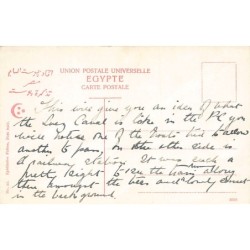 UNION POSTALE UNIVERSELLE
EGYPTE
CARTE POSTALE
This will give you an idea of what
the Suez Canal is like in the P.C. you
will notice one of the boats tied to allow
another to pass, on the other side is
a railway station. It was such a
pretty sight to see the train along
there amongst the trees and lovely sunset
in the background.